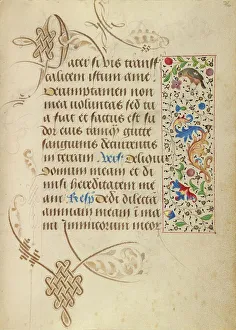 pater si vis transfer
calicem istum a me.
Verumptamen non
mea voluntas sed tu
a fiat et factus est su
dor eius tanq̄ gutte
sanguinis decurrentis
in terram Vers Relinqui
domum meam et di
misi hereditatem me
am Resp̄ Dedi dilectā
animam meam i ma
nu inimicorum meor